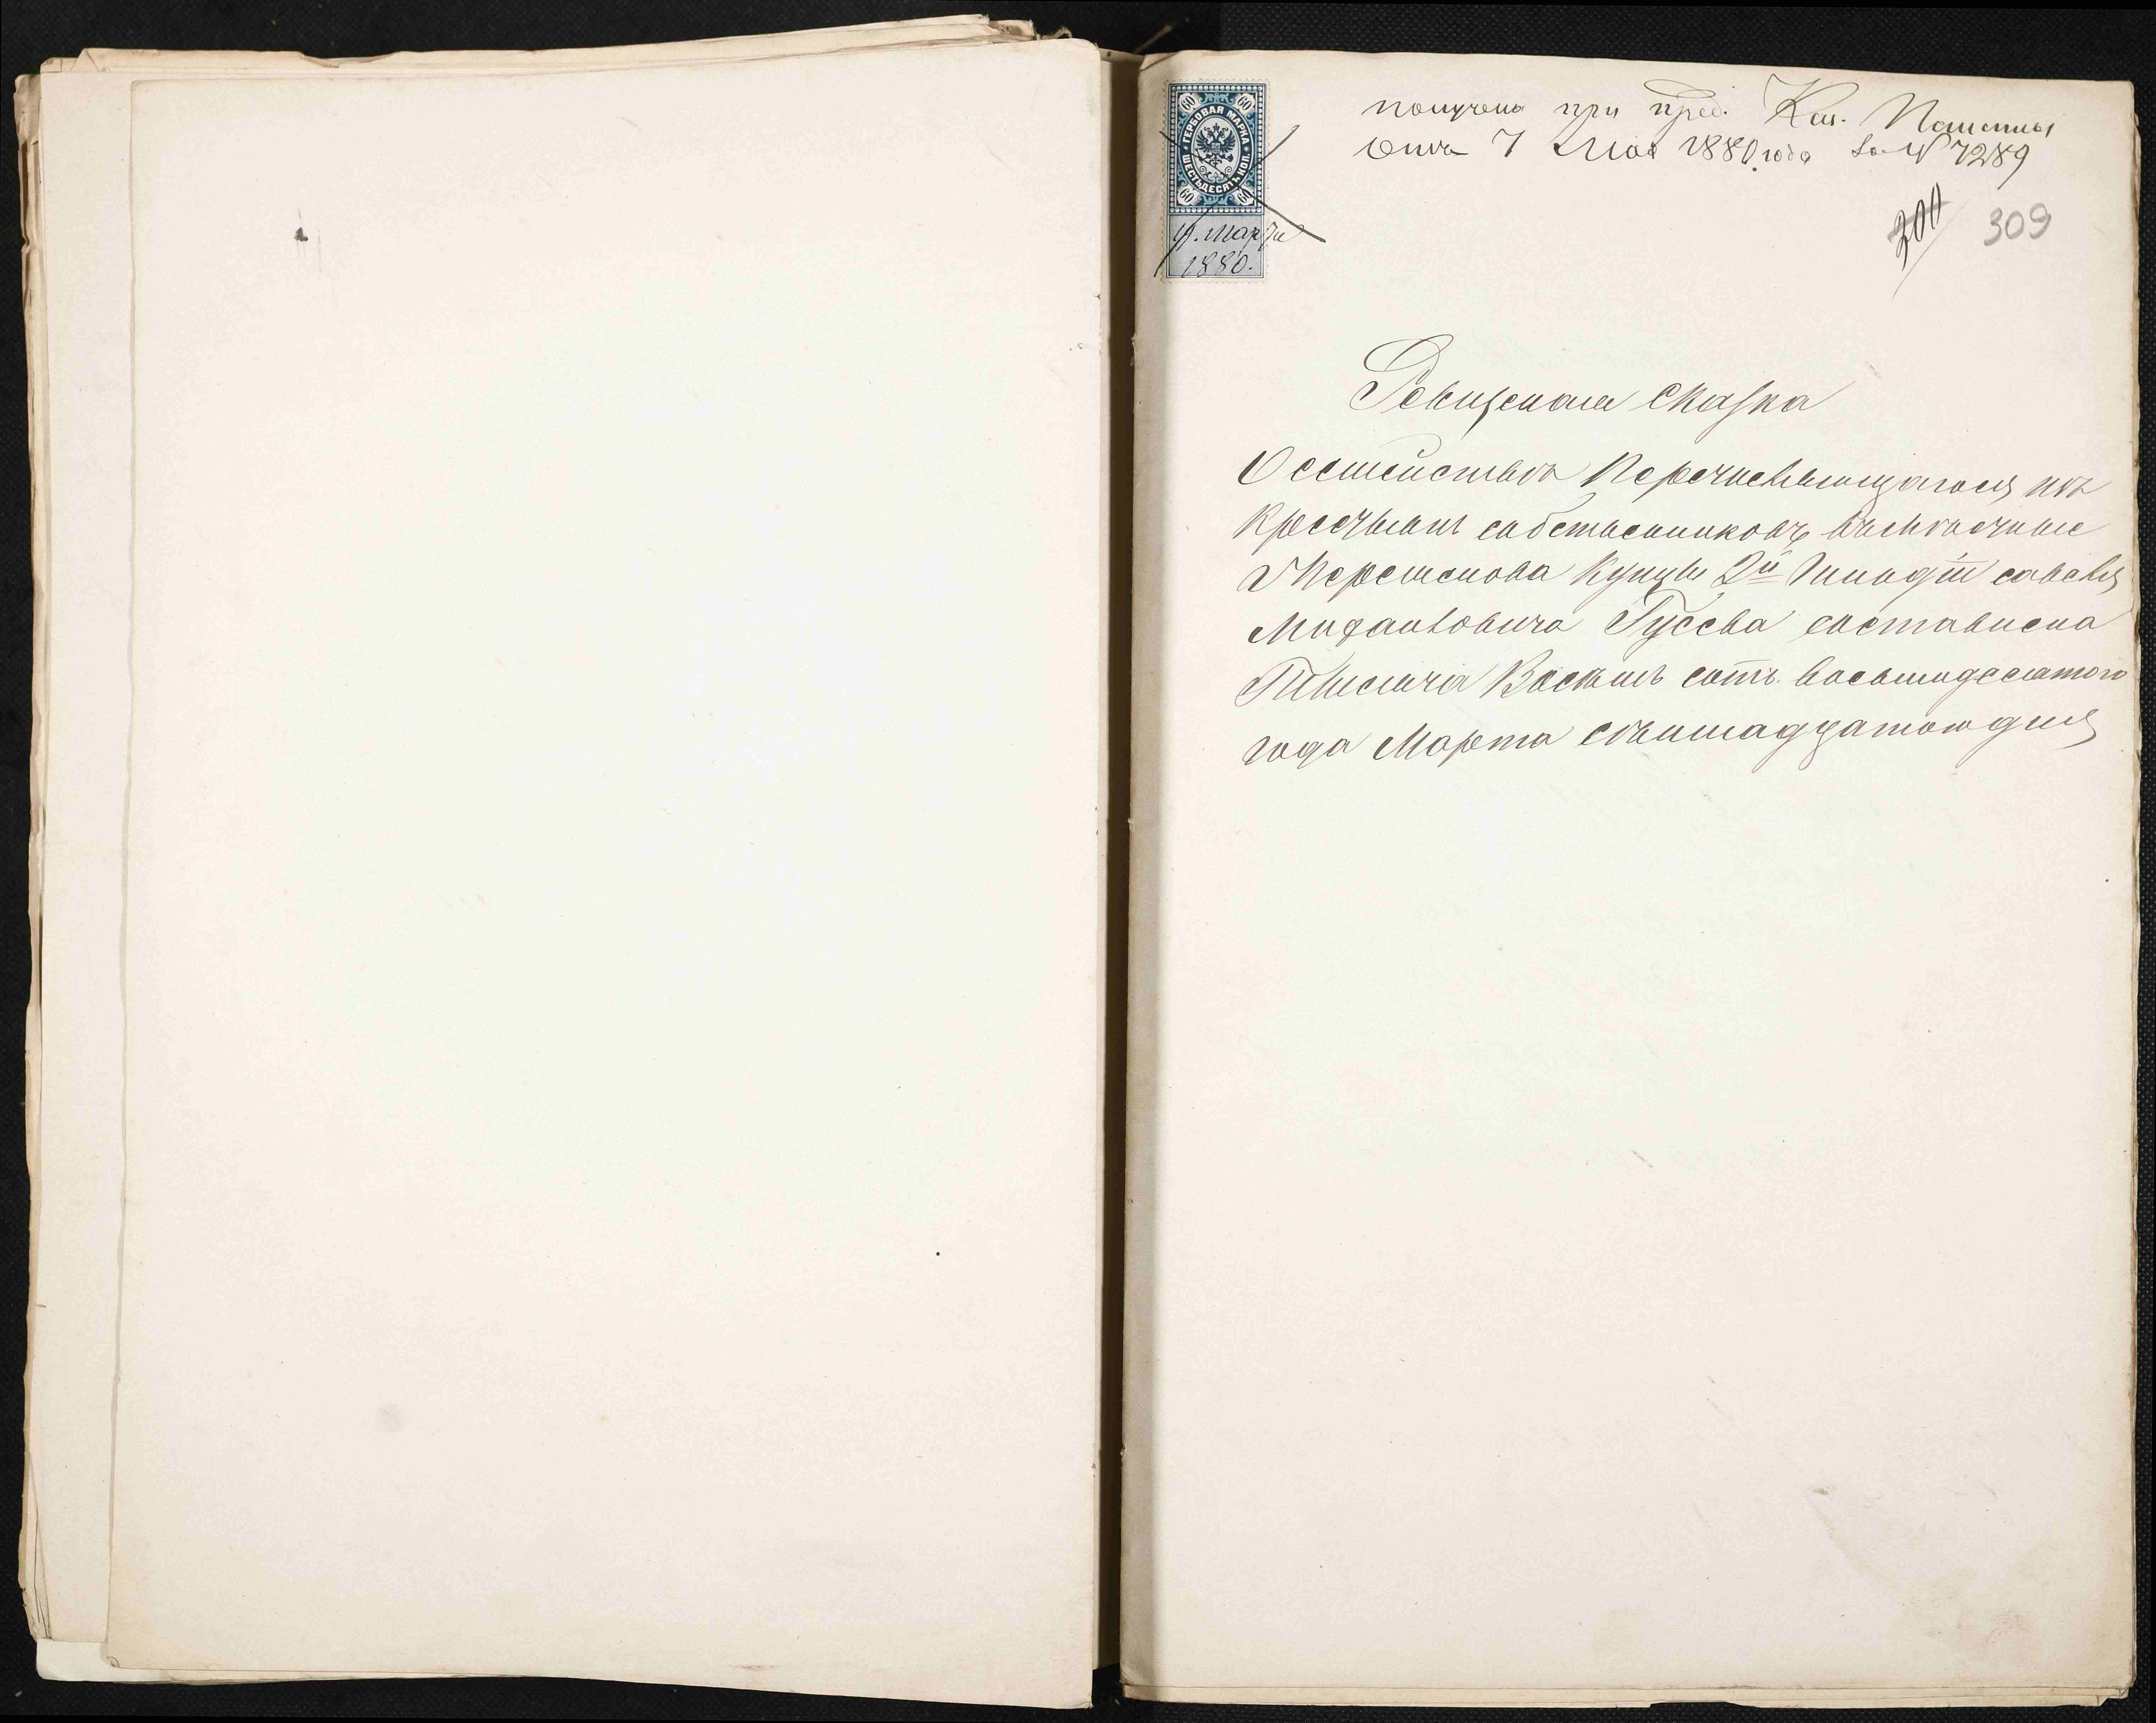 получено при пред. Каз. Палаты
отъ 7 Мая 1880 года за № 7289
60 60
ГЕРБОВАЯ МАРКА
ШЕСТЬДЕСЯТЪ КОП.
60 60
17. Марта
1880.
200 309
Ревизская сказка
О семействѣ перечисляющагося изъ
крестьянъ собственниковъ
купцы 2й гильдіи Савелья
Гусева составлена
Тысяча Восемь сотъ восьмидесятого
года Марта семнадцатого дня